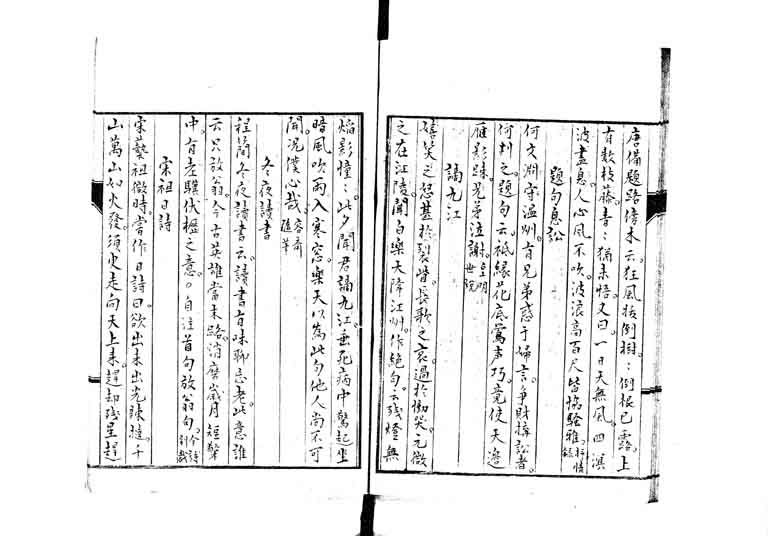 唐備題路傍木云狂風拔倒樹：倒根已露上
有數枝藤青：猶未悟又曰一日天無風四溟
波盡息人心風不吹波浪高百尺皆協騷雅抒情錄
題句息訟
何文淵守温州有兄弟惑于婦言爭財搆訟者
何判之題句云祗緣花底鶯声巧竟使天邊
雁影踈兄弟泣謝皇明世説
謫九江
嬉笑之怒甚於裂眥長歌之哀過於慟哭元微
之在江陵聞白樂天降江州作絶句云殘燈無
焰影憧：此夕聞君謫九江垂死病中驚起坐
暗風吹雨入寒窓樂天以為此句他人尚不可
聞況僕心哉容齋隨筆
冬夜讀書
程簡冬夜讀書云讀書有味聊忘老此意誰
云只放翁今古英雄當末路消磨歲月短檠
中有老驥伏櫪之意○自注首句放翁句今詩別裁
宋祖日詩
宋藝祖微時嘗作日詩曰欲出未出光辣撻千
山萬山如火發須臾走向天上來趕却殘星趕